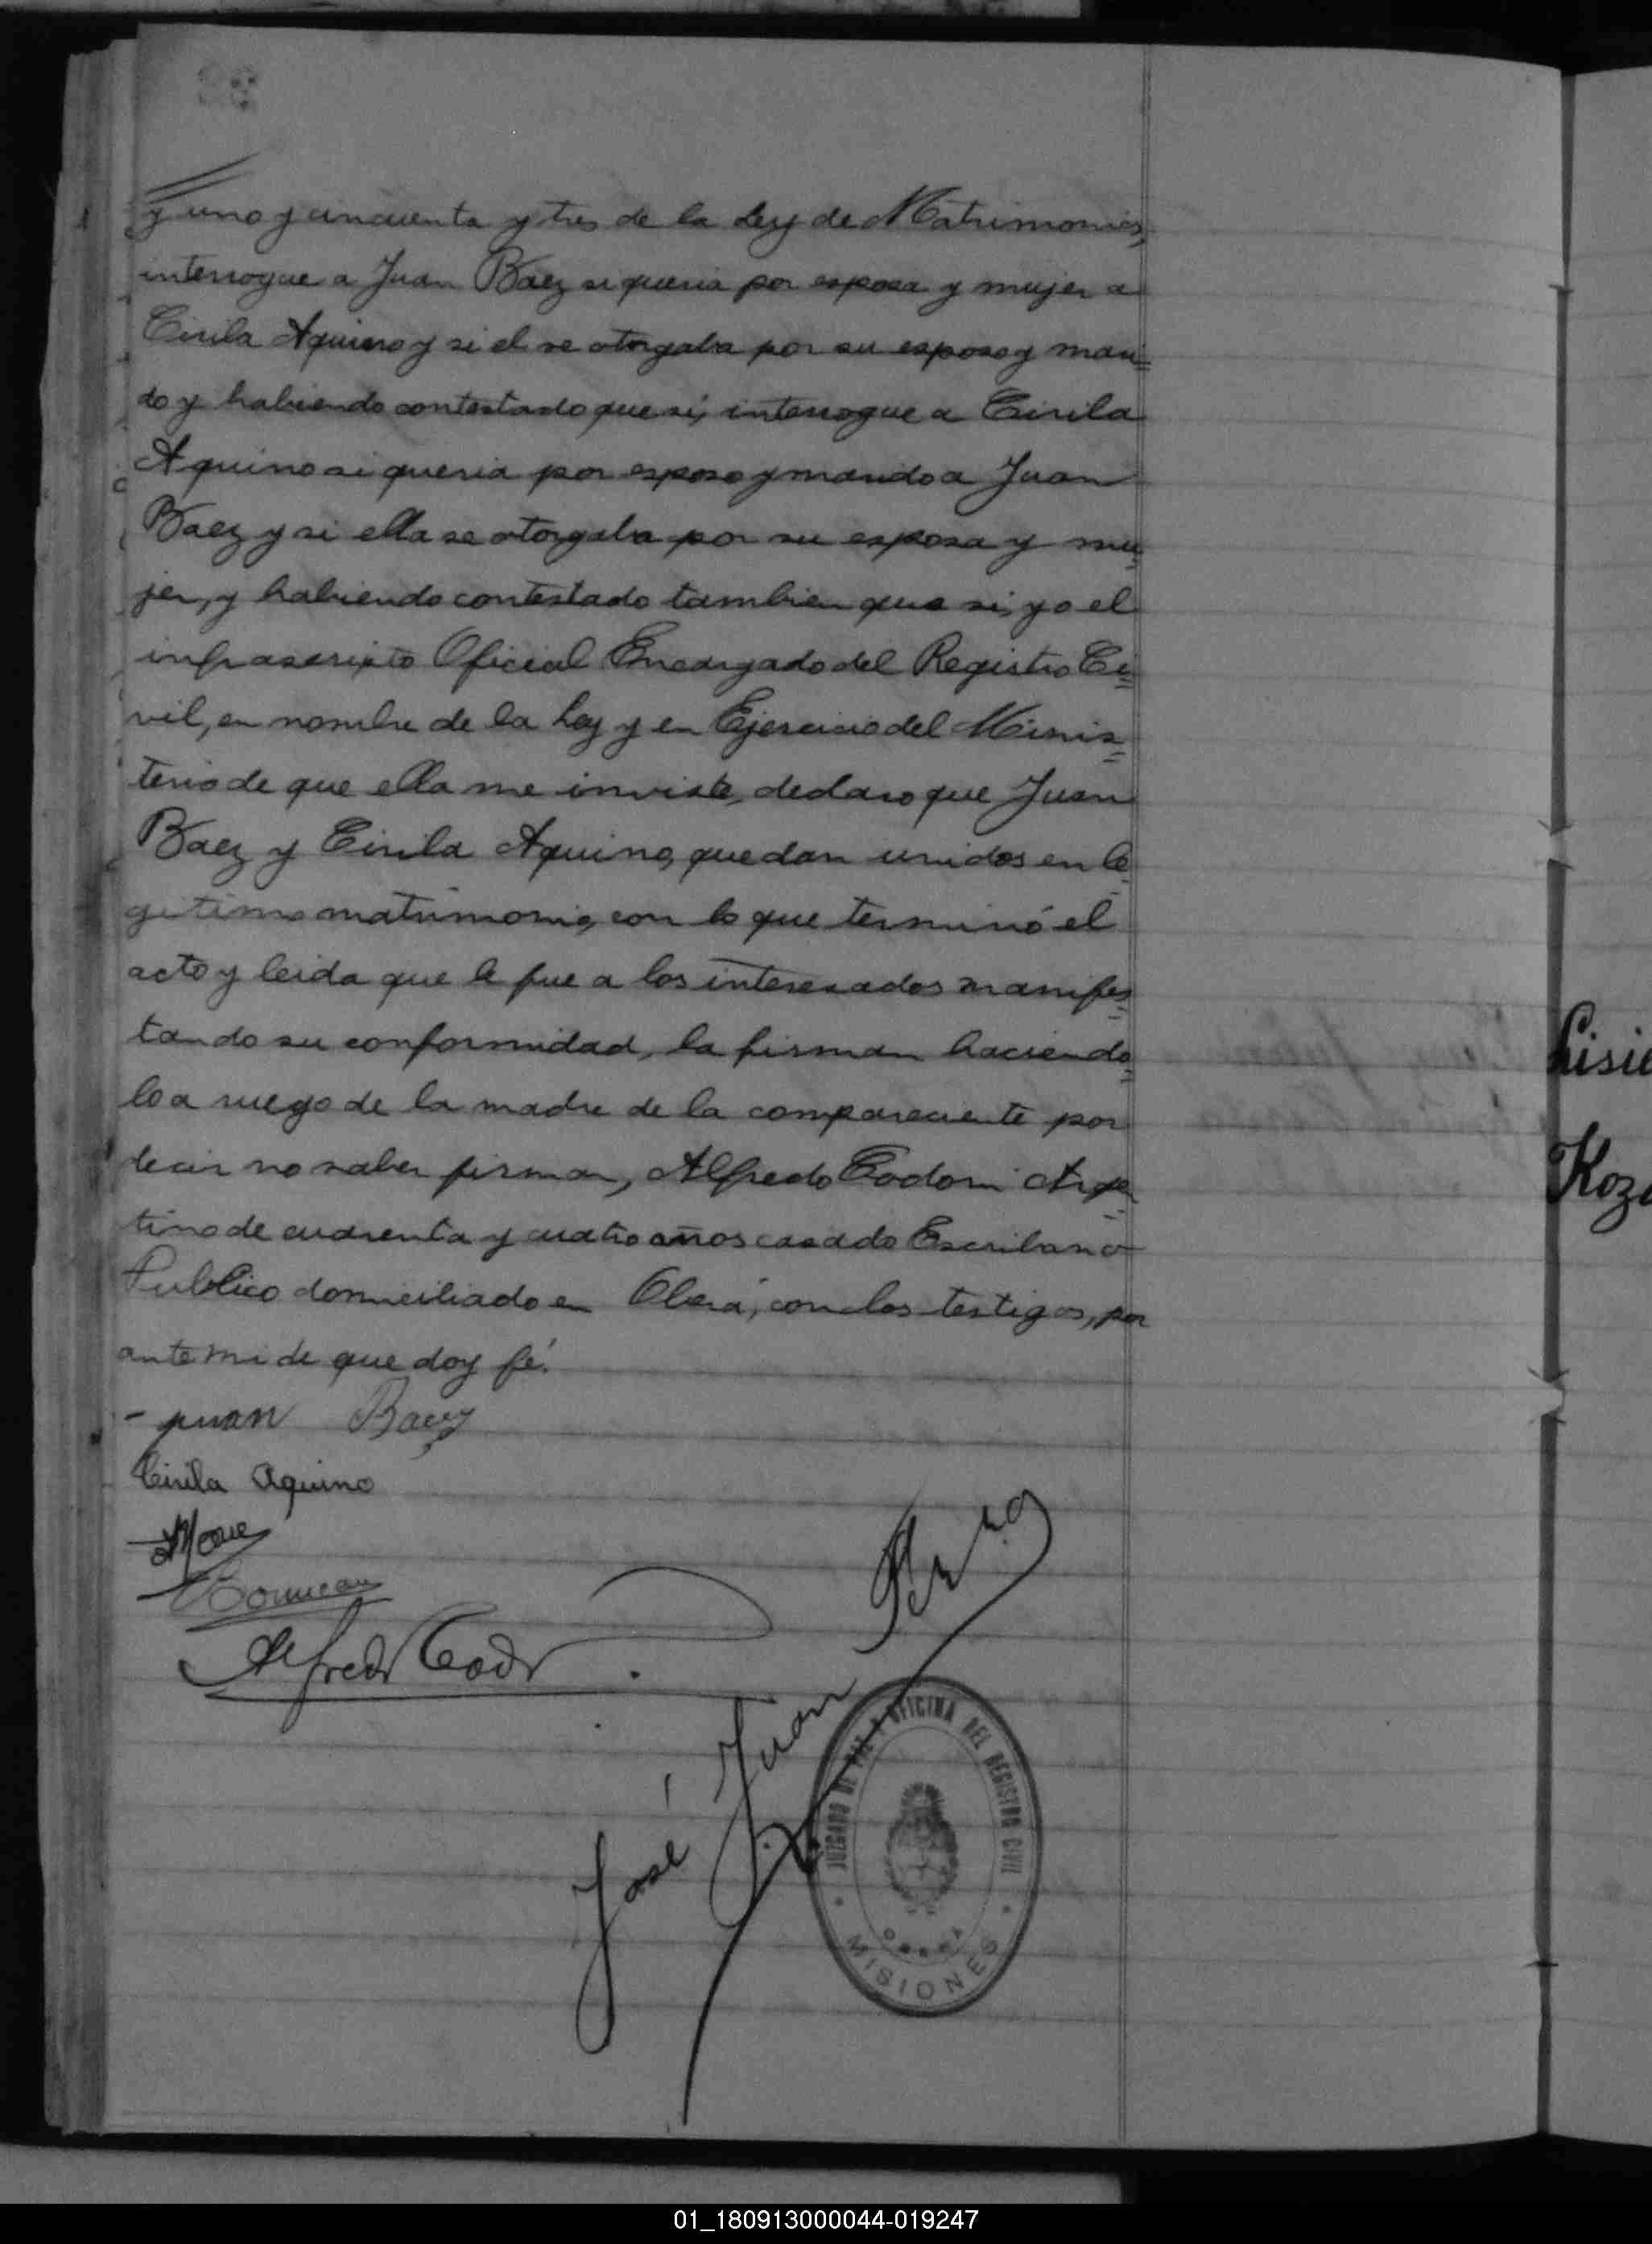 y uno y cincuenta y tres de la Ley de Matrimonios,
interrogue a Juan Baez si queria por esposa y mujer a
Cirila Aquino y si el se otorgaba por su esposo y mari=
do y habiendo contestado que si, interrogue a Cirila
Aquino si queria por esposo y marido a Juan
Baez y si ella se otorgaba por su esposa y mu=
jer, y habiendo contestado tambien que si, yo el
infrascripto Oficial Encargado del Registro Ci=
vil, en nombre de la Ley y en Ejercicio del Minis=
terio de que ella me inviste, declaro que Juan
Baez y Cirila Aquino, quedan unidos en le=
gitimo matrimonio, con lo que terminó el
acto y leida que le fue a los interesados manifes=
tando su conformidad, la firman haciendo=
lo a ruego de la madre de la compareciente por
decir no saber firmar, Alfredo Argen=
tino de cuarenta y cuatro años casado Escribano
Publico domiciliado en Oberá, con los testigos, por
ante mi de que doy fé.
- juan Baez
Cirila Aquino
Alfredo
José Juan
JUZGADO DE PAZ Y OFICINA DEL REGISTRO CIVIL
OBERA
MISIONES
Lisie
Koz
01_180913000044-019247